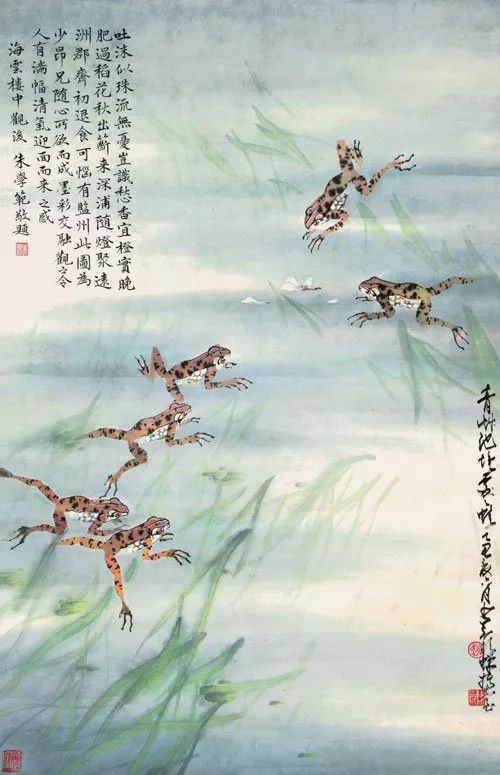 青草池塘處處蛙
吐沫似珠流無憂豈識愁香宜橙實晚
肥過稻花秋出籪来深浦隨燈聚遠
洲郡齋初退食可惱有監州此圖為
少昂兄隨心所欲而成墨彩交融觀之令
人有滿幅清氣迎面而来之感
海雲樓中觀後 朱學範敬題